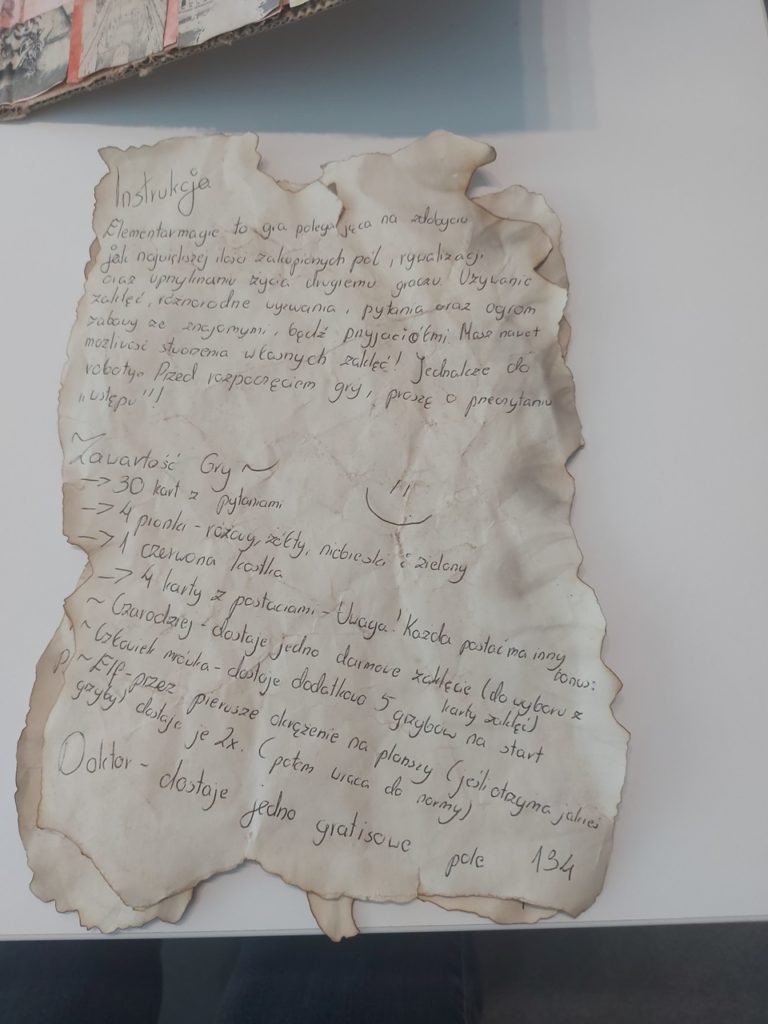 Instrukcja
Elementarmagic to gra polegająca na zdobyciu
jak największej ilości zakupionych pól, rywalizacji
oraz upnylinaniu życia drugiemu graczu. Używanie
zaklęć, różnorodne wyzwania, pytania oraz ogrom
zabawy ze znajomymi, bądź pryjaciółmi. Masz nawet
możliwość stworzenia własnych zaklęć! Jednakże do
roboty. Przed rozpoczęciem gry, proszę o przeczytaniu
"wstępu"!
~Zawartość Gry~
-> 30 kart z pytaniami
-> 4 pionki - różowy, żółty, niebieski i zielony
-> 1 czerwona kostka
-> 4 karty z postaciami - Uwaga! Każda postać ma inny bonus:
~ Czarodziej - dostaje jedno darmowe zaklęcie (do wyboru z karty zaklęć)
~ Człowiek mrówka - dostaje dodatkowo 5 grzybów na start
~ Elf - przez pierwsze okrążenie na planszy (jeśli otrzyma jakieś
grzyby) dostaje je 2x. (potem wraca do normy)
Doktor - dostaje jedno gratisowe pole 134